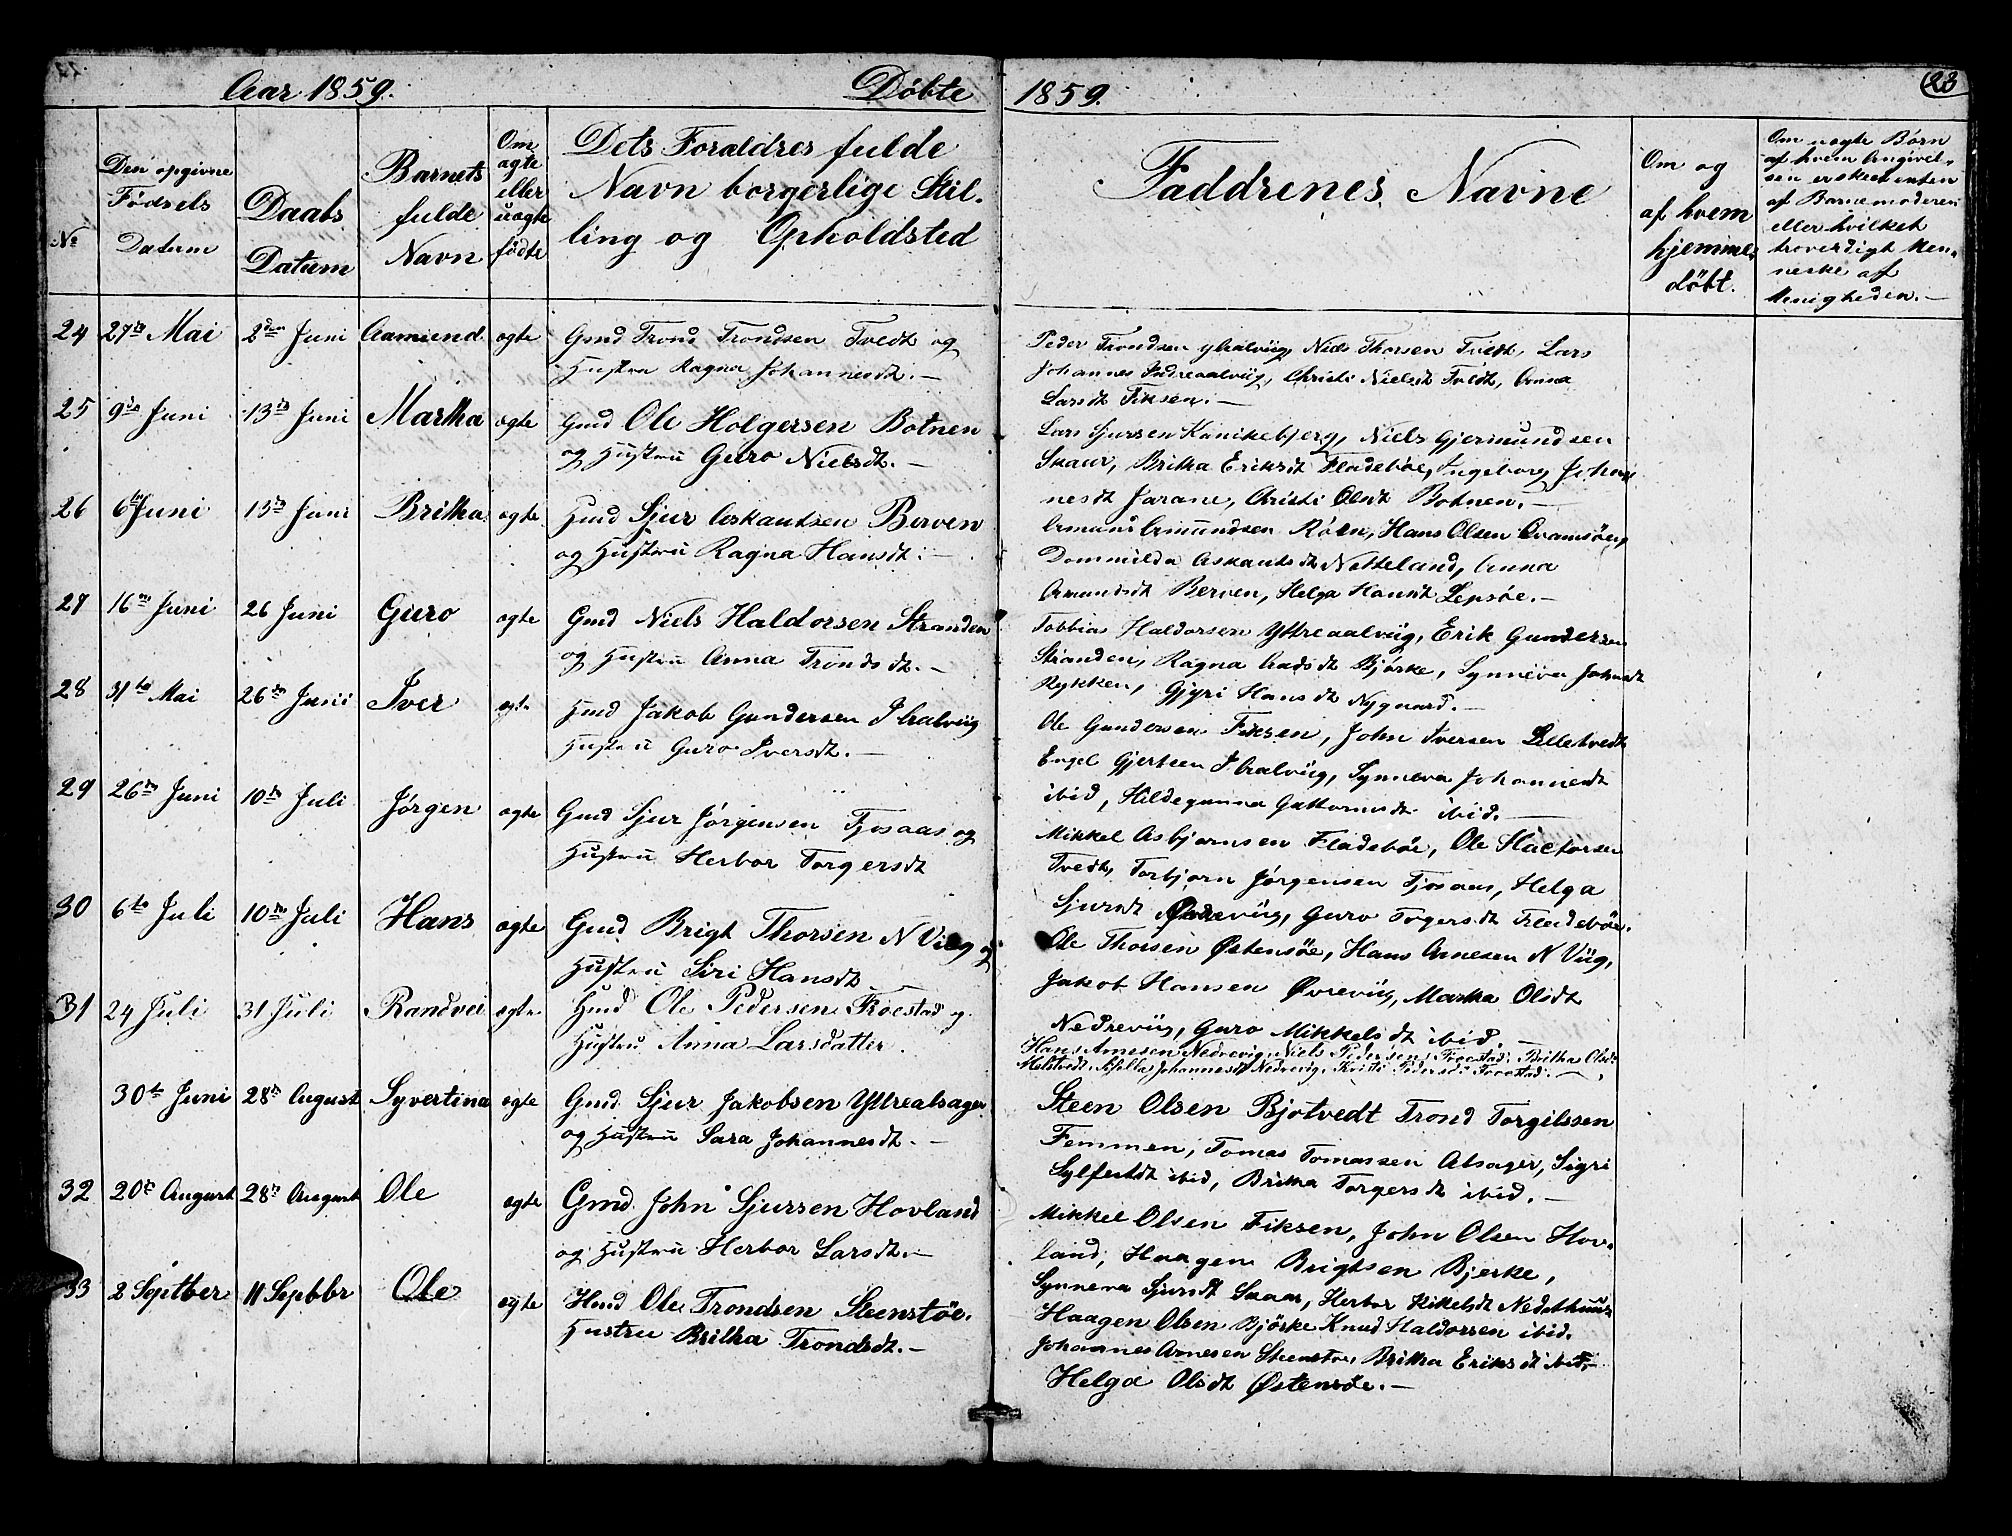 Aar 1859. Døbte 1859. 23
No
Den opgivne
Fødsels
Datum
Daabs
Datum
Barnets
fulde
Navn
Om
ægte
eller
uægte
fødte
Dets Foraldres fulde
Navn borgerlige Stil-
ling og Opholdsted
Faddrenes Navne
Om og
af hvem
hjemme-
døbt.
Om uægte Børn
af hvem Angivel-
sen er skeet enten
af Barnemoderen
eller hvilket
troverdigt Men-
neske af
Menigheden.—
24 27de Mai 2den Juni Aamund ægte Gmd Trond Trondsen Tvedt og
Hustru Ragna Johannesdt.—
Peder Trondsen yAalviig, Niels Thorsen Tvedt, Lars
Johannes Indreaalviig, Christi Nielsdt Tvedt, Anna
Larsdt Fiksen.—
25 9de Juni 13de Juni Martha ægte Gmd Ole Holgersen Botnen
og Hustru Guro Nielsdt.—
Lars Sjursen Kanikebjerg, Niels Gjermundsen
Skaar, Britha Eriksdt Fladebøe, Ingeborg Johan
nesdt Jarane, Christi Olsdt Botnen.—
26 6te Juni 13de Juni Britha ægte Hmd Sjur Askautsen Berven
og Hustru Ragna Hansdt.—
Amund Amundsen Róen, Hans Olsen Qvamsøen,
Dommilda Askautsdt Netteland, Anna
Amundsdt Berven, Helga Hansdt Lepsöe.—
27 16de Juni 26 Juni Guro ægte Gmd Niels Haldorsen Stranden
og Hustru Anna Trondsdt.—
Tobbias Haldorsen Yttreaalviig, Erik Gundersen
Stranden, Ragna Aadsdt Bjørke, Synneva Johnsdt
Rykken, Gjyri Hansdt Nygaard.—
28 31te Mai 26de Juni Iver ægte Hmd Jakob Gundersen I Aalviig
Hustru Guro Iversdt.—
Ole Gundersen Fiksen, John Iversen Lilletvedt
Engel Gjertsen I Aalviig, Synneva Johannesdt
ibid, Hildegunna Guttormsdt ibid.—
29 26de Juni 10de Juli Jørgen ægte Gmd Sjur Jørgensen Fjosaas og
Hustru Herbor Torgersdt
Mikkel Asbjørnsen Fladebøe, Ole Hactorsen
Tvedt, Torbjorn Jørgensen Fjosaas, Helga
Sjursdt Øvreviig, Guro Torgersdt Fladebøe.
30 6te Juli 10de Juli Hans ægte Gmd Brigt Thorsen N Viig og
Hustru Siri Hansdt
Ole Thorsen Østensöe, Hans Arnesen N Viig,
Jakob Hansen Øvreviig, Martha Olsdt
Nedreviig, Guro Mikkelsdt ibid.—
31 24 Juli 31 Juli Randvei ægte Hmd Ole Pedersen Froestad og
Hustru Anna Larsdatter.
Hans Arnesen Nedrevig, Niels Pedersen Froestad, Britha Olsdt
Melstvedt, Johannesdt Nedrevig, Kristi Pedersdt Froestad.—
30te Juni 28de August Syvertina ægte Gmd. Sjur Jakobsen Yttrealsager
og Hustru Sara Johannesdt.—
Steen Olsen Bjotvedt Trond Torgilssen
Femmen, Tomas Tomassen Alsager, Sigri
Sylfestdt ibid, Britha Torgersdt ibid.—
32 20de August 28de August Ole ægte Gmd. John Sjursen Hovland
og Hustru Herbor Larsdt.—
Mikkel Olsen Fiksen, John Olsen Hov-
land, Haagen Brigtsen Bjerke,
Synneva Sjursdt Skaar, Herbor Mikelsdt Nedsthuus
33 2 Septber 11 Sepbbr Ole ægte Hmd Ole Trondsen Steenstøe.
Hustru Britha Trondsdt.—
Haagen Olsen Bjørke Knud Haldorsen ibid.
Johannes Arnesen Steenstøe, Britha Eriksdt ibid,
Helga Olsdt Østensøe.—